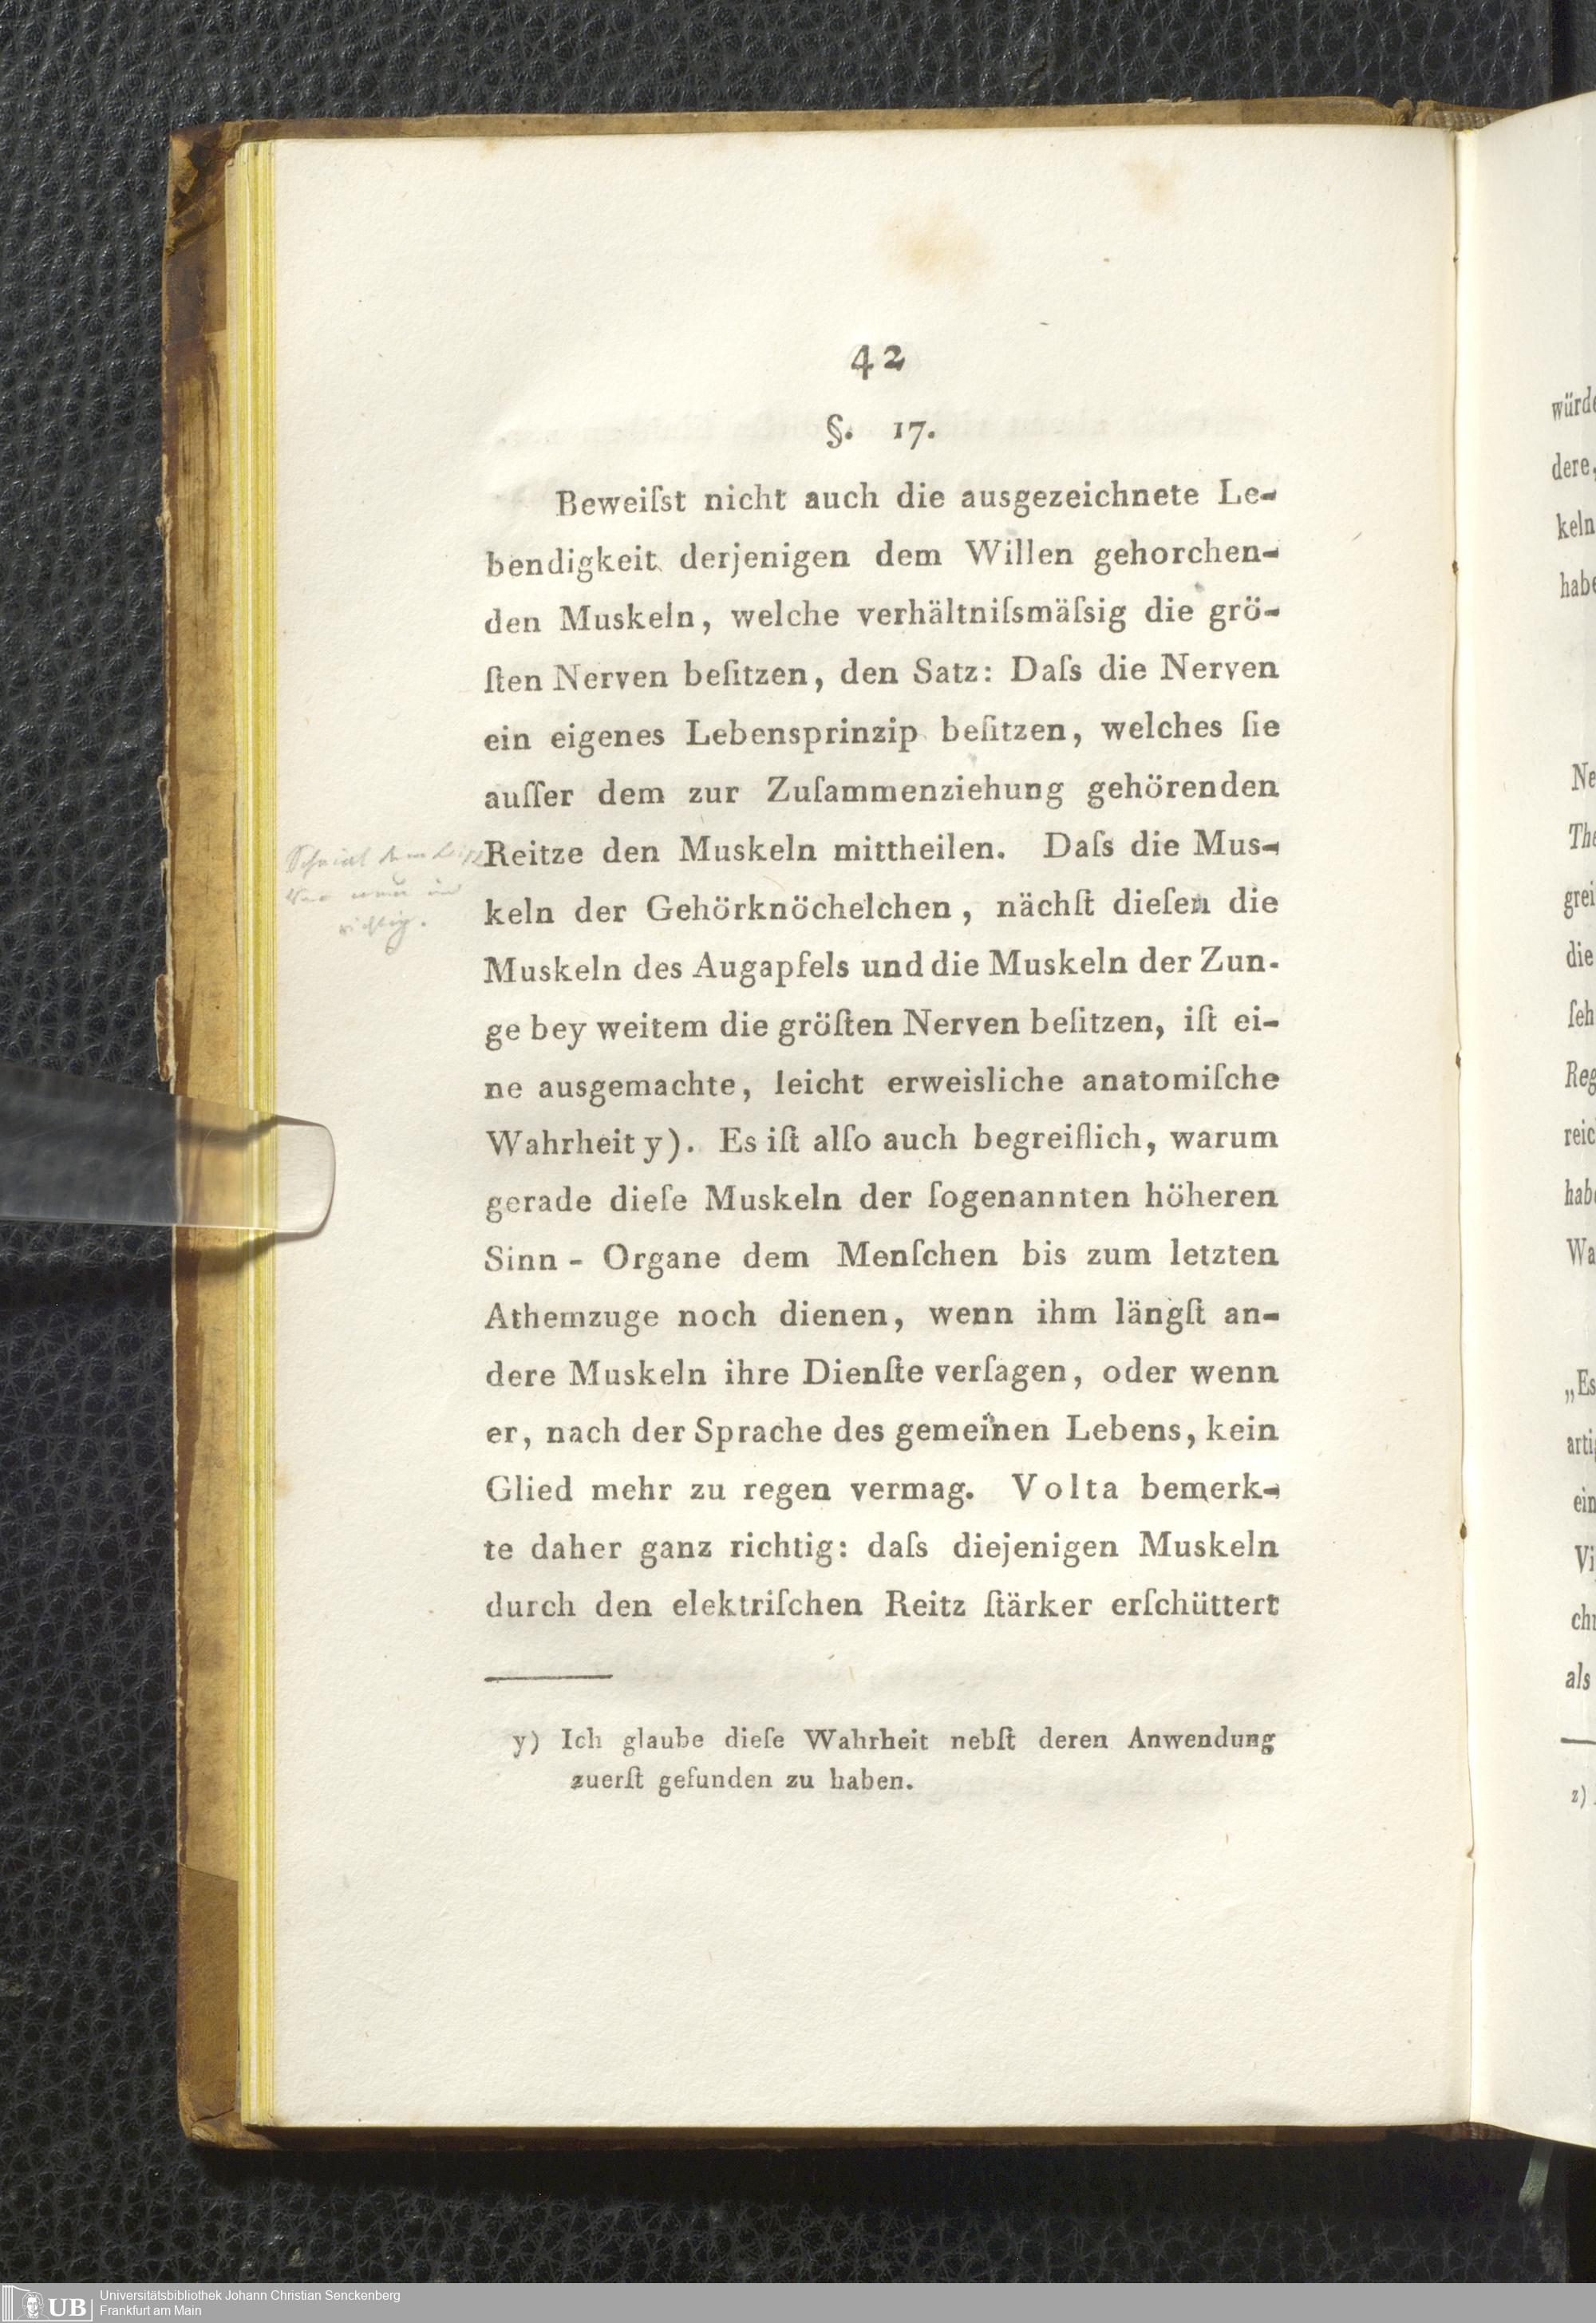 42
§. 17.
Beweiſst nicht auch die ausgezeichnete Le-
bendigkeit derjenigen dem Willen gehorchen-
den Muskeln, welche verhältniſsmäſsig die grö-
ſten Nerven beſitzen, den Satz: Daſs die Nerven
ein eigenes Lebensprinzip beſitzen, welches ſie
auſſer dem zur Zuſammenziehung gehörenden
Reitze den Muskeln mittheilen. Daſs die Mus-
keln der Gehörknöchelchen, nächſt dieſen die
Muskeln des Augapfels und die Muskeln der Zun-
ge bey weitem die gröſten Nerven beſitzen, iſt ei-
ne ausgemachte, leicht erweisliche anatomiſche
Wahrheit y). Es iſt alſo auch begreiflich, warum
gerade dieſe Muskeln der ſogenannten höheren
Sinn - Organe dem Menſchen bis zum letzten
Athemzuge noch dienen, wenn ihm längſt an-
dere Muskeln ihre Dienſte verſagen, oder wenn
er, nach der Sprache des gemeinen Lebens, kein
Glied mehr zu regen vermag. Volta bemerk-
te daher ganz richtig: daſs diejenigen Muskeln
durch den elektriſchen Reitz ſtärker erſchüttert
y) Ich glaube dieſe Wahrheit nebſt deren Anwendung
zuerſt gefunden zu haben.
richtig.
würde
dere,
keln
habe
Ne
The
grei
die
ſeh
Reg
reic
habe
Wa
„Es
arti
ein
Vi
chr
als
z)
UB
Universitätsbibliothek Johann Christian Senckenberg
Frankfurt am Main